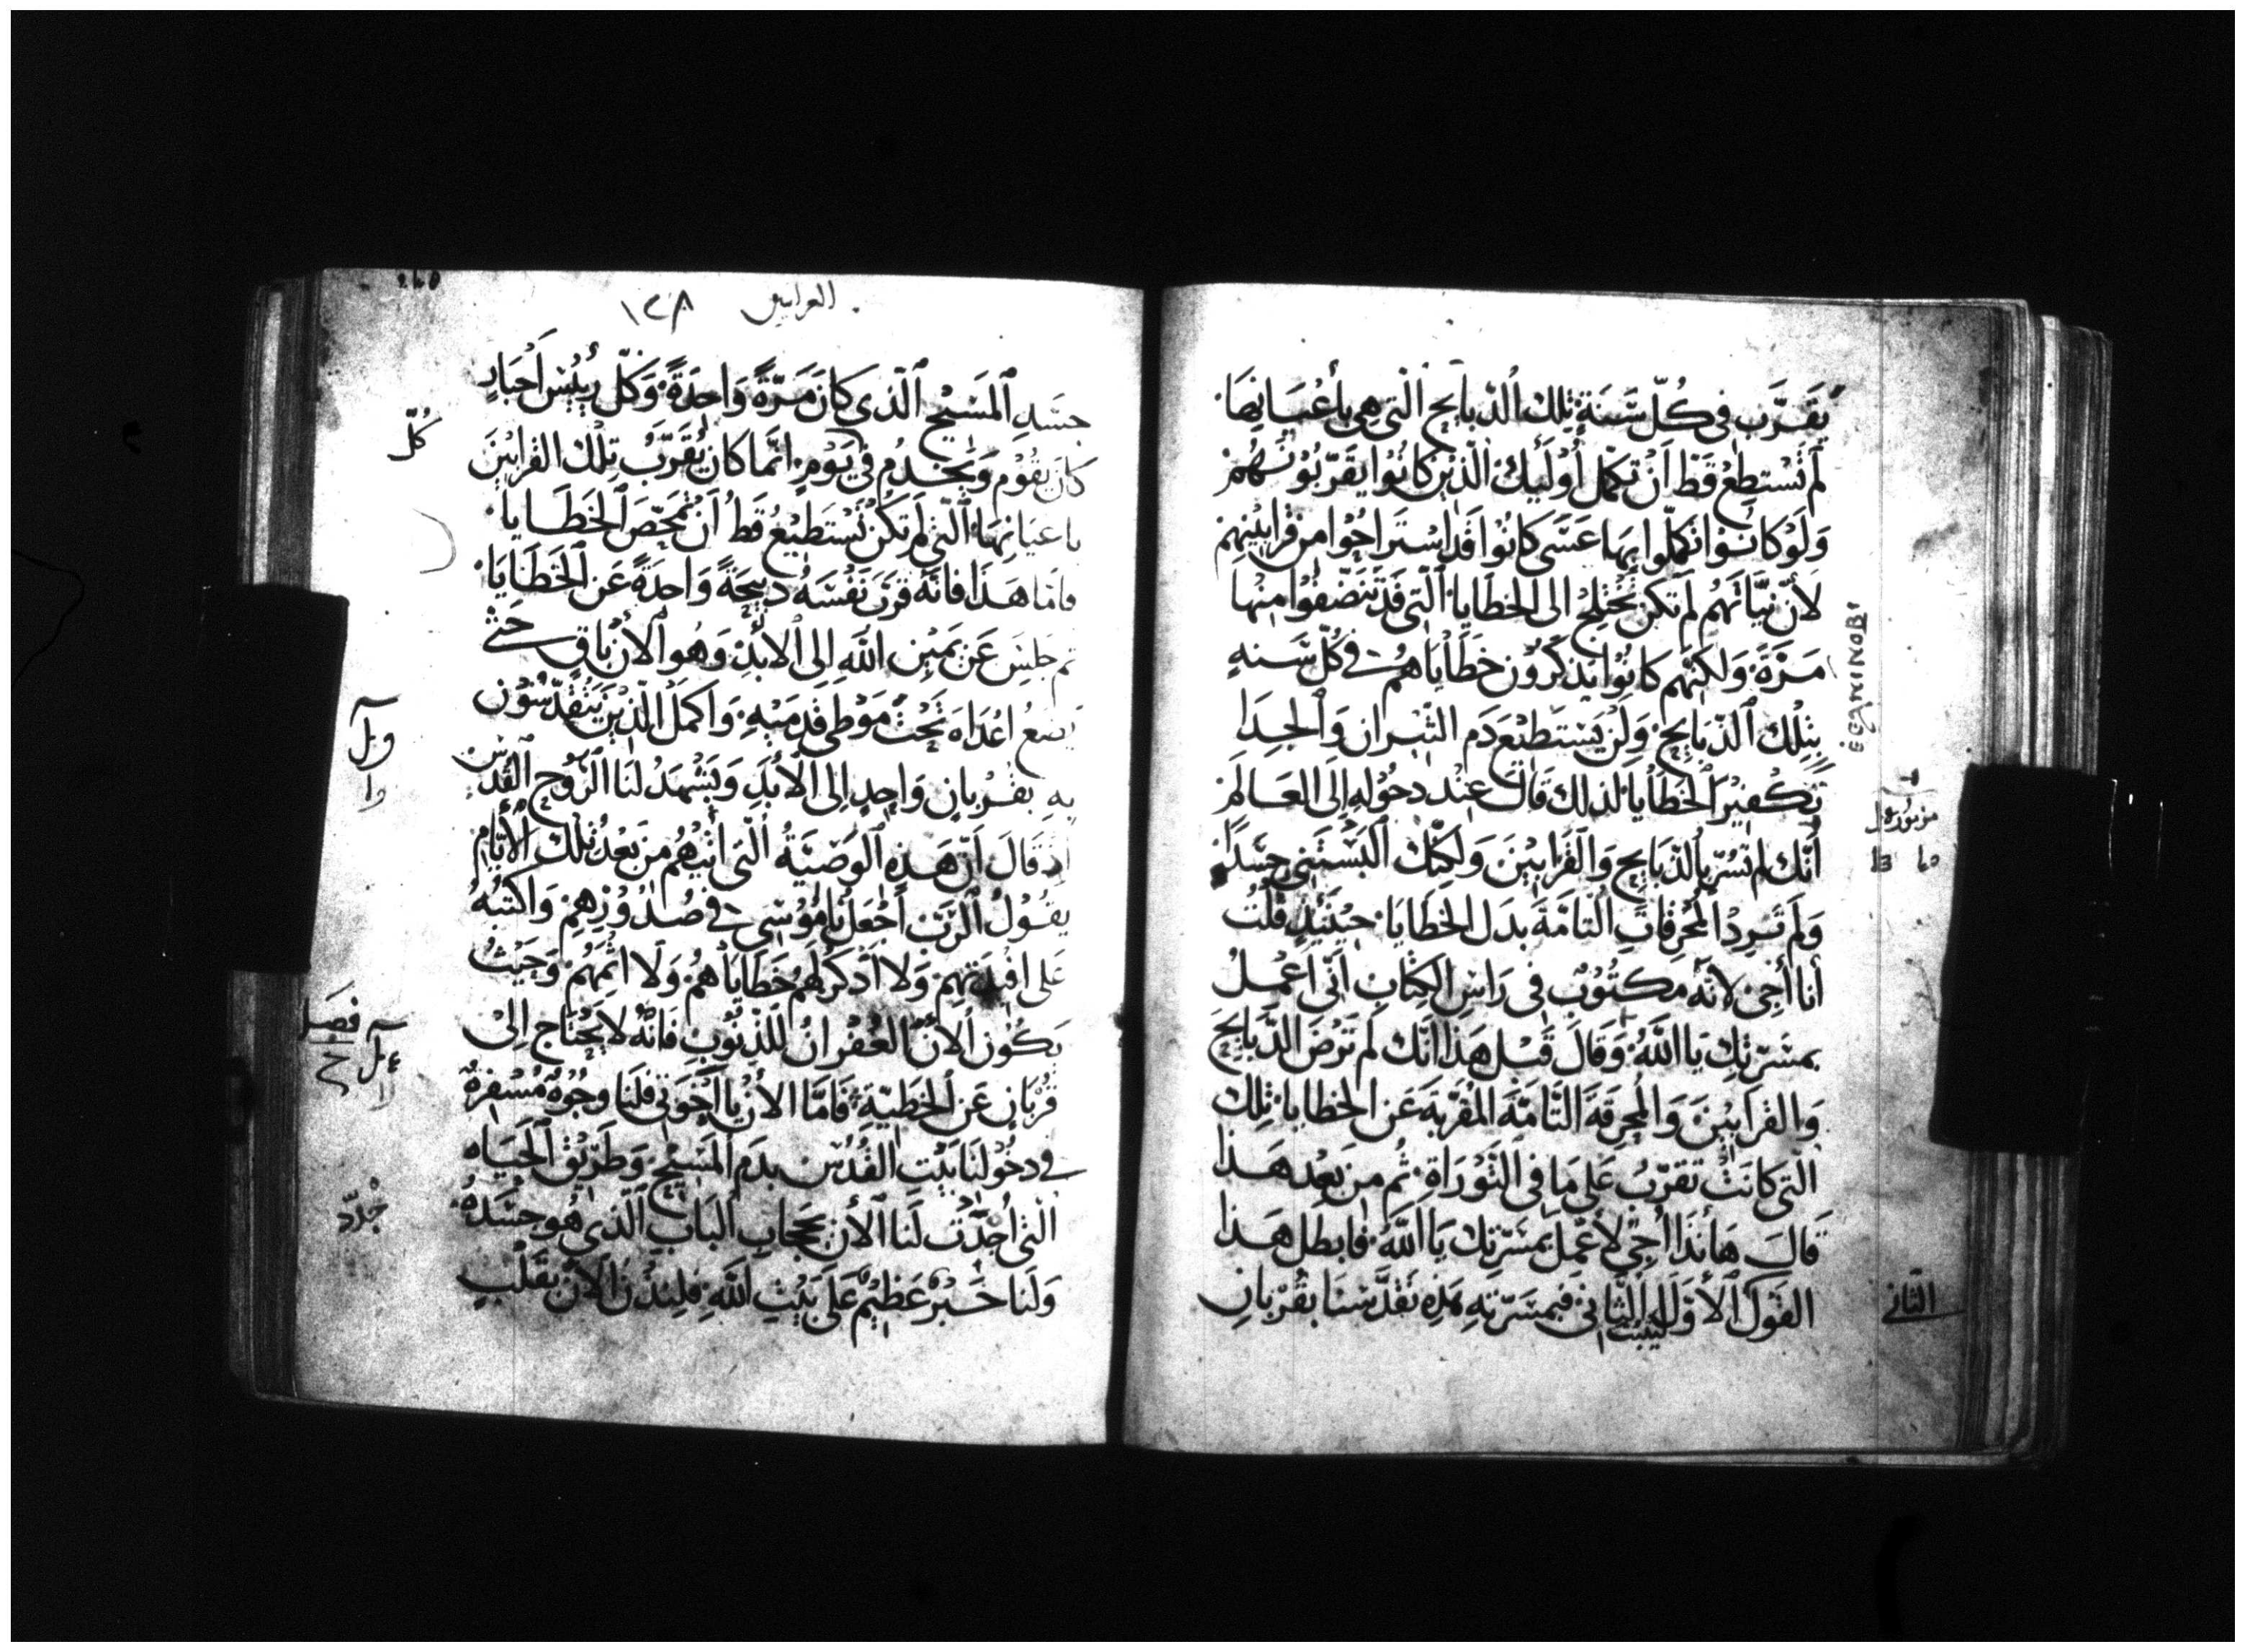 يُقَرَّب فى كُلّ سَنَةٍ تِلكَ الذَبايح الّتى هِى بأعْيَانِهَا
لَم تَسْتطِعْ قَط اَنْ تكمّل أُوْلَيِكَ الّذيْن كانُوا يقَرّبُونَهُمْ
وَلَوْ كانوْا انكمَلوا بِهَا عَسَى كانُوْا قَد اسْتَراحُوا من قرابيْنهِم
لأنّ نيَّاتهُم لم تكن تختلج الى الخطَايا الّتى قَد تنَضّفوُا مِنْها
مَرّةً وَلكنّهم كانُوْا يذكرُون خَطَاياهُمْ فى كُلّ سَنه
بِتْلِكَ الذّبَايح وَلَنْ يَسْتَطيْعَ دَم الثيْران وَالجِدَا
تَكْفيْر الخَطَايا لذلك قَالَ عِنْد دخُوْلهِ إلَى العَالَم
أنّك لم تُسَرّ بالذّبَايح وَالقَرابيْنَ وَلكنّك اَلبَسْتَني جَسَدًا
وَلَم تَرِد المُحرقَاتِ التامّةَ بدَل الخطَايَا حِيْنَئِذٍ قُلْتُ
أنا أجى لأنّه مكتُوُبٌ فى رَاس الكِتَابِ أنّى اعْمَلُ
بمسَرّتكَ يَا اللّهُ وَقالَ قَبْل هَذا انّك لم تَرْضَ الذّبَايحَ
وَالقَرابيْنَ وَالمُحرِقَةَ التَّامّةَ المقرّبَه عَن الخطايا تِلك
الّتى كانَتْ تقرّبُ عَلى مَا فى التَّوْرَاةِ ثُم من بَعْد هَذا
قالَ هَأنَذا أجِى لأعْمَل بمسَرّتِك يَا اللّهُ فابطل هَذا
القَوْل الأوّلَ ليثبت الثانى فبمسَرّتهِ هَذِه تقدّسْنَا بقُرْبَانِ
من مزمور
الثّانى
EGANINOBI
العبرانيين ١٢٨
جسَدِ المسَيْح الّذى كانَ مَرّةً وَاحِدَةً وَكلّ رييْس أحبَارٍ
كانَ يقُوْم وَيخْدمُ فى يَوْمٍ انّما كان يُقَرّبُ تِلْكَ القرابيْنَ
باعيَانِهَا الّتي لَم تكُنْ تَسْتَطِيْعُ قَطُ أنْ تمحّصَ الخطَايا
فامَا هَذَا فانّهُ قرّبَ نَفْسَهُ ذبيحَةً وَاحدَةً عَن الخَطَايَا
ثم جلسَ عَن يَميْن اللّهِ الى الأبَدِ وَهُو الأنَ باقٍ حَتّى
يَضع اعْدَاه تَحْتَ مَوْطى قَدميْهِ وَاكمَل الّذيْنَ يَتقَدّسُوْن
بِهِ بقُرْبانٍ وَاحِدٍ الى الأبَدِ وَيَشْهَدُ لنَا الرّوُح القدْس
اِذ قالَ أنّ هَذِه الوَصيّةُ الّتى أتيْهُم من بَعْد تلكَ الأيّامِ
يقُوْلُ الرّبّ أجْعَل نامُوْسِي فى صُدُوْرِهِمْ وَاكتبُهُ
عَلى افيدَتهم وَلا أذكرُ لهمْ خَطَايَاهُمْ وَلا اثمهُمْ وَحَيْثُ
يَكُوْن الأنَ الغُفْرانُ للذّنُوْبِ فَانّهُ لا يُحْتاج الىْ
قُرْبَانٍ عَن الخطيّةِ فَامّا الأنَ يا اخوَتى فلنَا وجُوْهٌ مُسْفِرةٌ
فى دخُوْلنَا بَيْت القُدْس بدَم المَسَيْح وَطَريْق الحيَاه
الّتى أجدّت لنَا الأن بحجَابِ البَابِ الّذى هُو جسَدُهُ
وَلنَا حَبْرٌ عَظيْمٌ عَلى بَيْتِ اللّهِ فلندْنُ الأن بقَلْبٍ
كُلّ
فصل
جُدّد